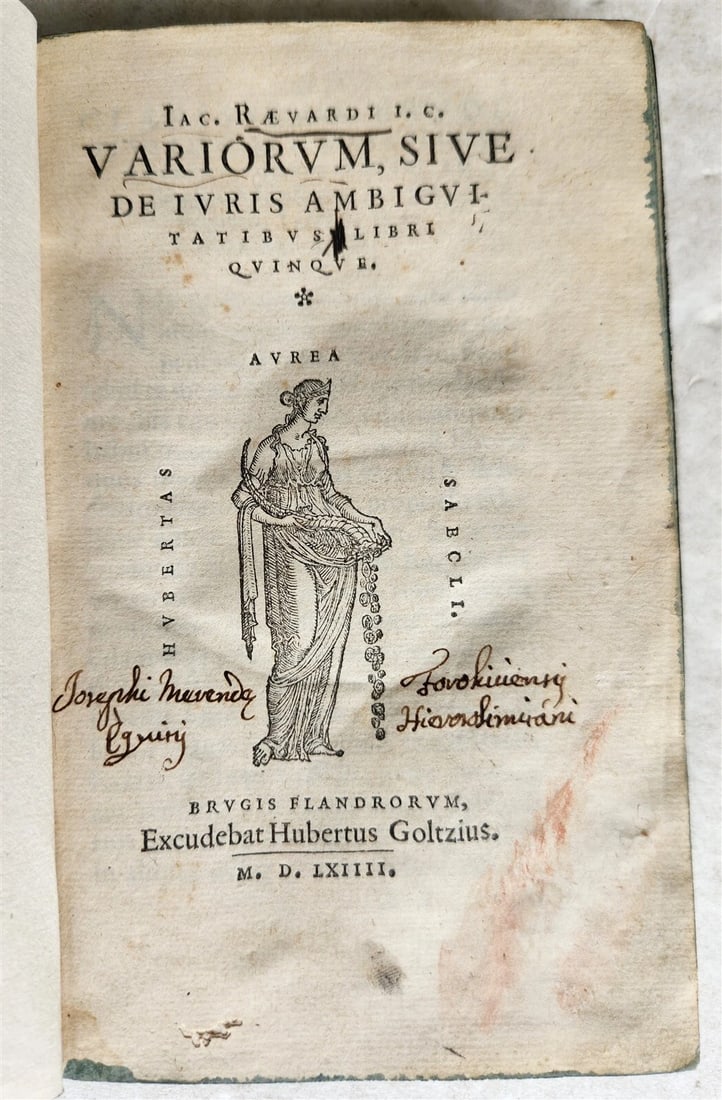 IAC. RÆVARDI I. C.
VARIORVM, SIVE
DE IVRIS AMBIGVI-
TATIBVS LIBRI
QVINQVE.
AVREA
HVBERTAS
SAECLI.
Iosephi Merendę
BRVGIS FLANDRORVM,
Excudebat Hubertus Goltzius.
M. D. LXIIII.